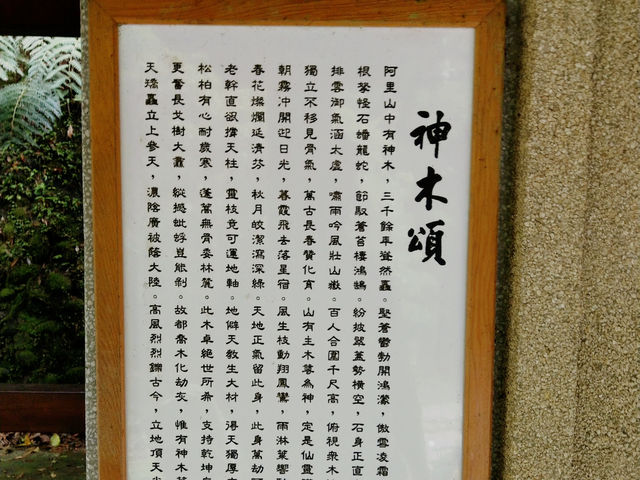 神木頌
阿里山中有神木，三千餘年聳然矗。堅蒼鬱勃開鴻濛，傲雲凌霜
根拏怪石蟠龍蛇，節駁蒼苔棲鴻鵠。紛披翠蓋勢橫空，石身正直
排雲御氣涵太虛，嘯雨吟風壯山嶽。百人合圍千尺高，俯視眾木
獨立不移見骨氣，萬古長春贊化育。山有主木尊為神，定是仙靈
朝霧沖開迎日光，暮霞飛去落星宿。風生枝動翔鳳鸞，雨淋葉響
春花燦爛延清芬，秋月皎潔瀉深綠。天地正氣留此身，此身萬劫
老幹直欲撐天柱，靈枝竟可運地軸。地僻天教生大材，得天獨厚
松柏有心耐歲寒，蓬蒿無骨委林麓。此木卓絕世所希，支持乾坤
更誓長戈樹大纛，縱撼蚍蜉豈能剝。故都喬木化劫灰，惟有神木
天矯矗立上參天，濃陰廣被蔭大陸。高風烈烈鑠古今，立地頂天